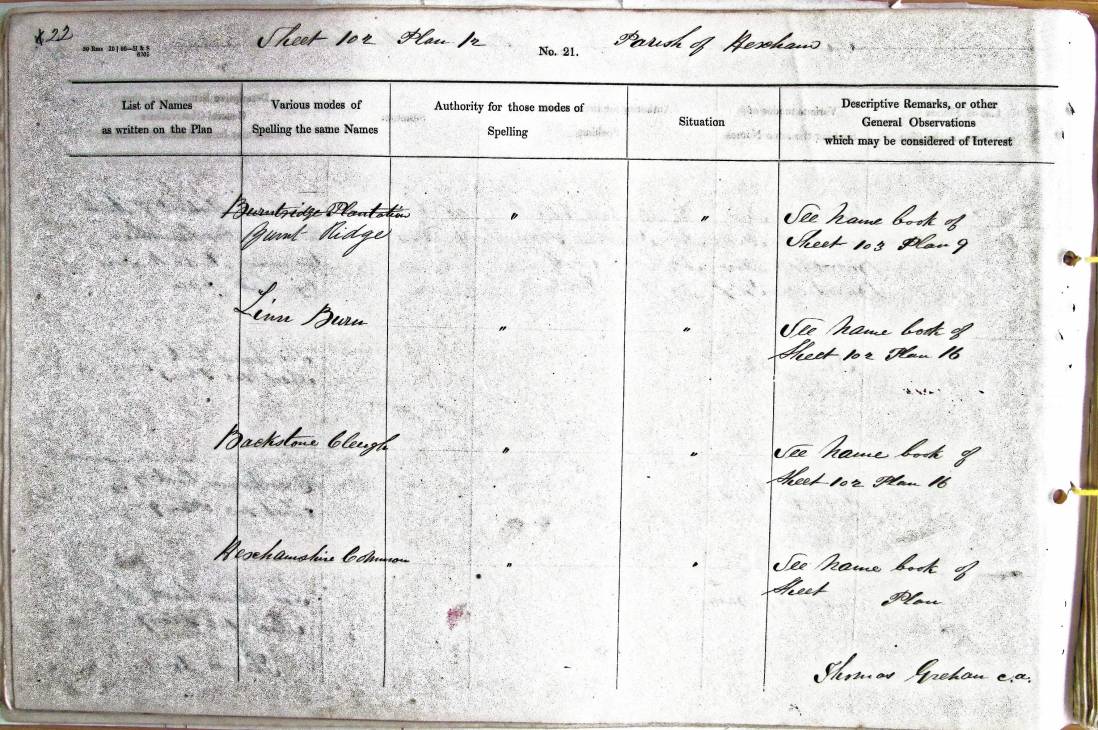 x22
Sheet 102 Plan 12 No. 21. Parish of Hexham
List of Names
as written on the Plan
Various modes of
Spelling the same Names
Authority for those modes of
Spelling
Situation
Descriptive Remarks, or other
General Observations
which may be considered of Interest
Burntridge Plantation " " See Name book of
Burnt Ridge Sheet 103 Plan 9
Linn Burn " " See Name book of
Sheet 102 Plan 16
Backstone Cleugh " " See Name book of
Sheet 102 Plan 16
Hexhamshire Common " " See Name book of
Sheet Plan
Thomas Grehan c.a.